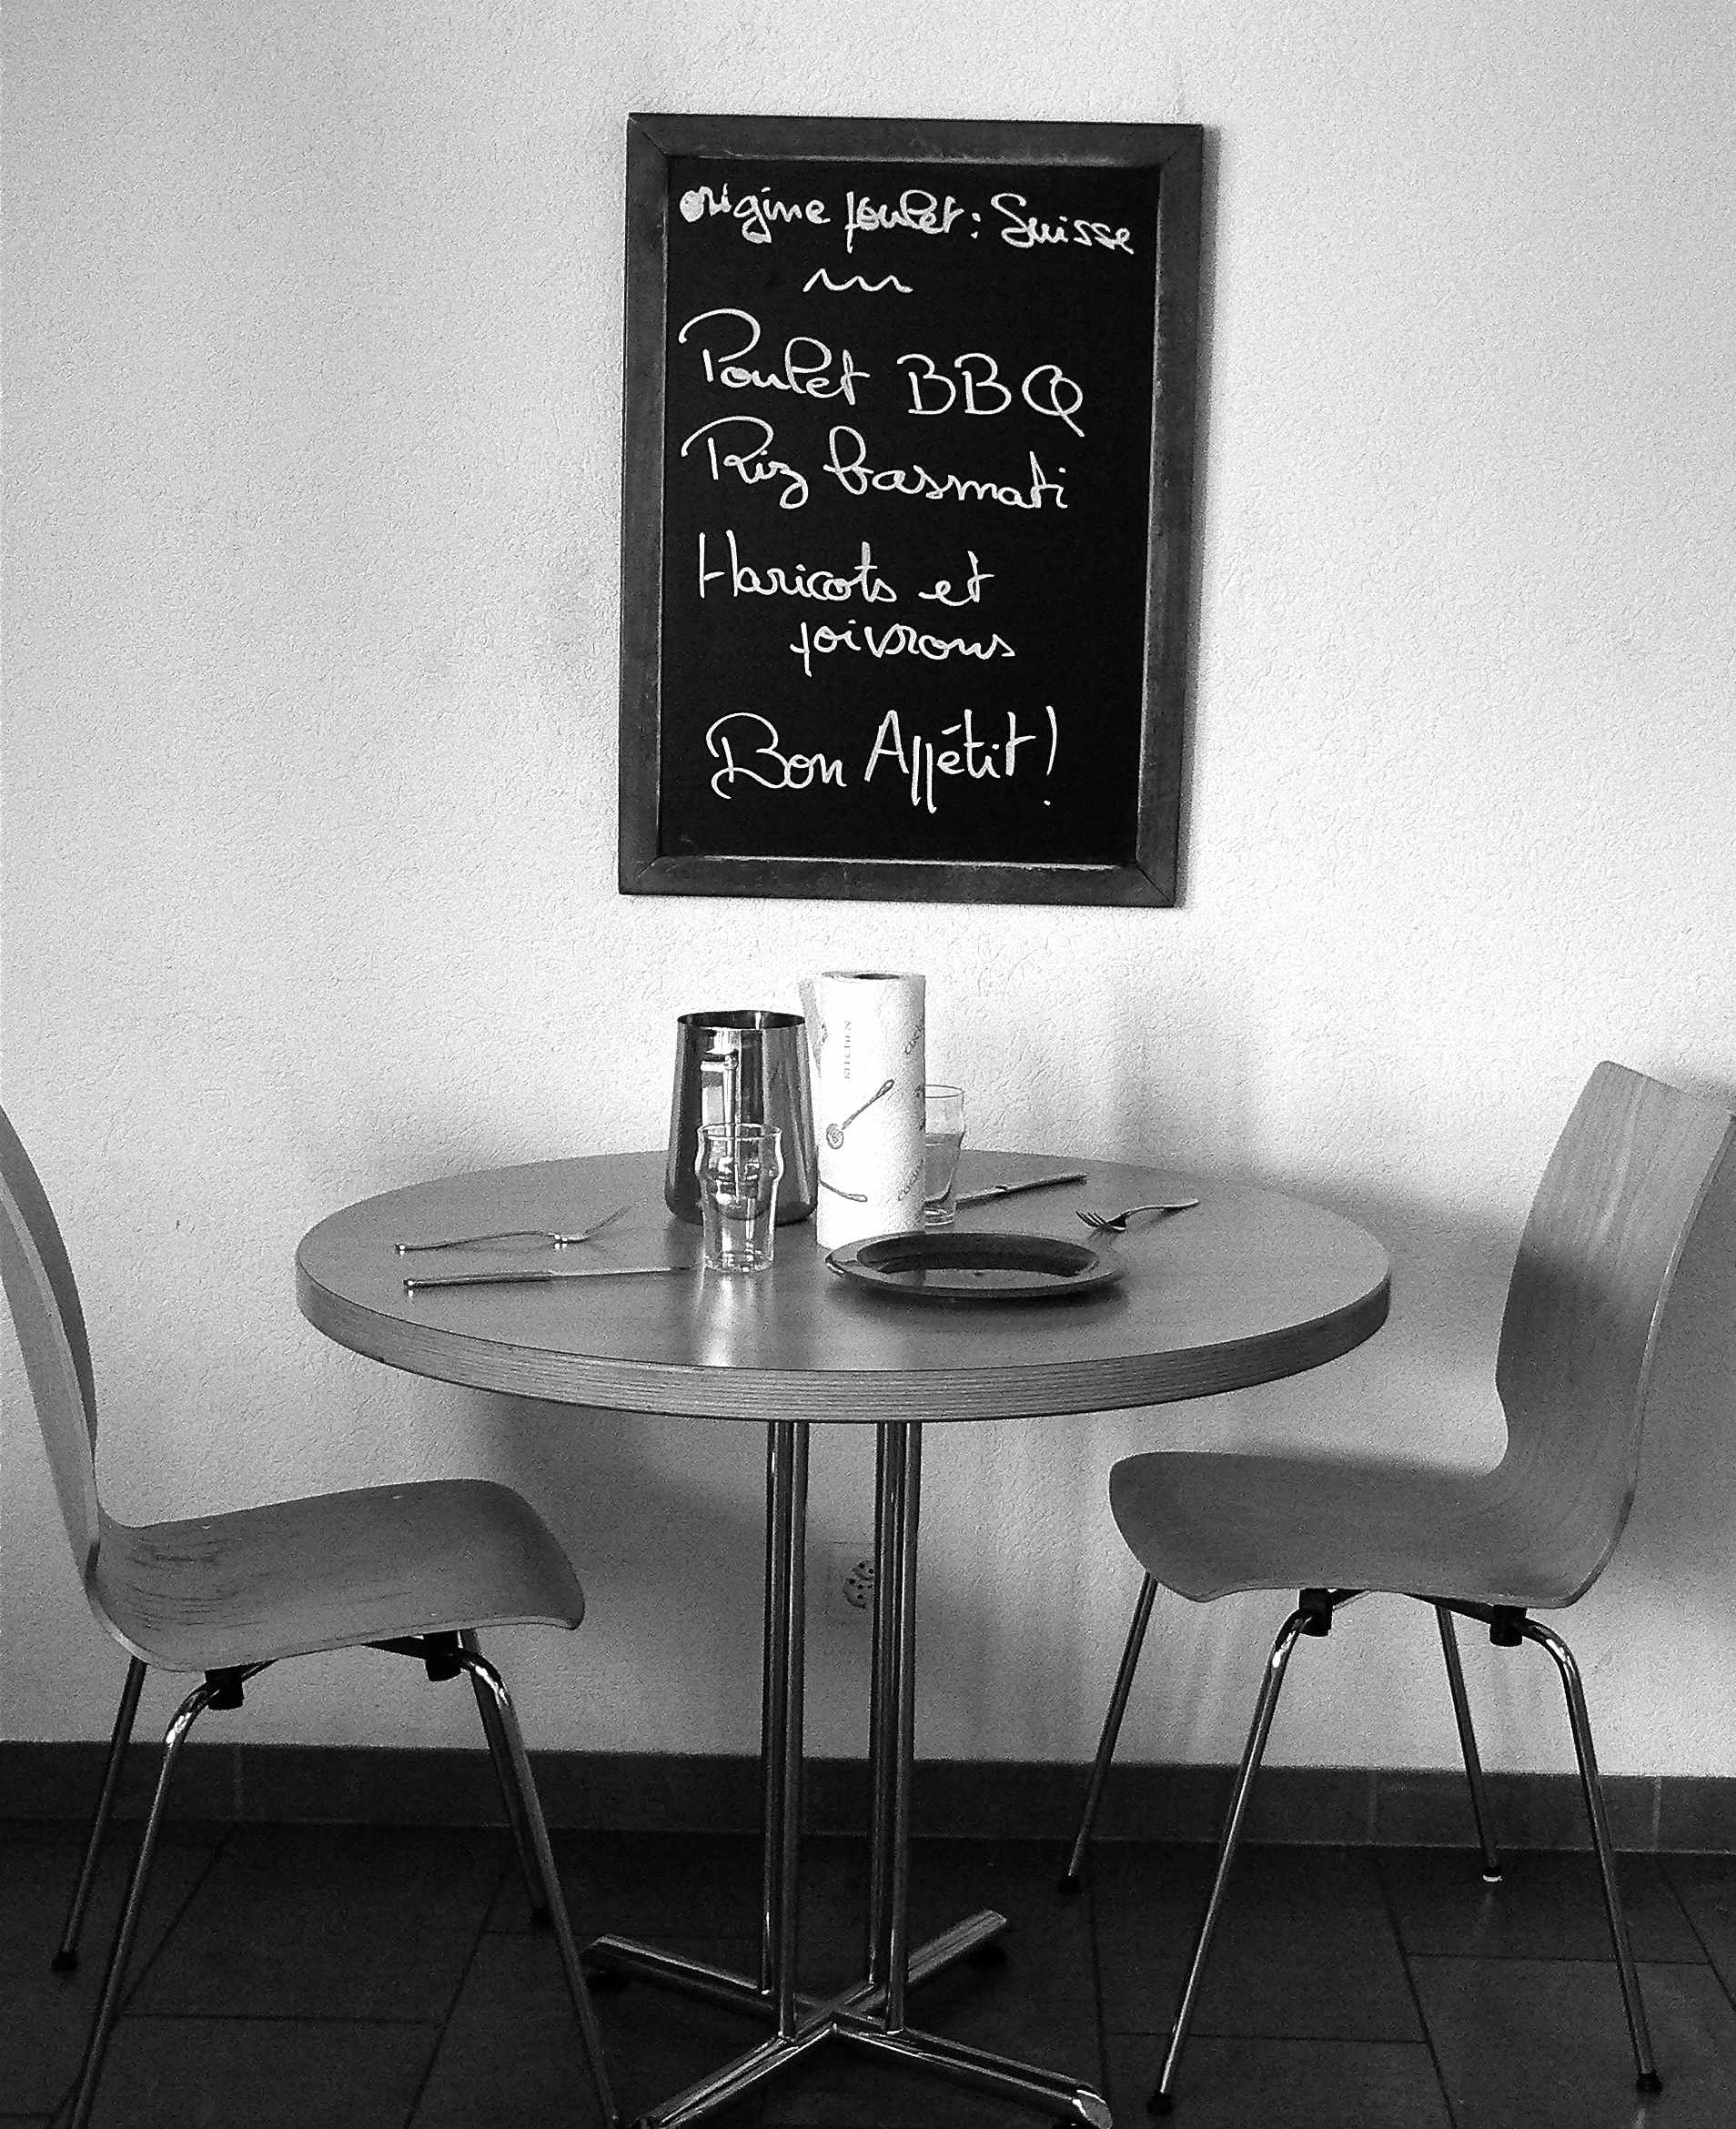 origine poulet : Suisse
Poulet BBQ
Riz basmati
Haricots et
poivrons
Bon Appétit !
KITCHEN